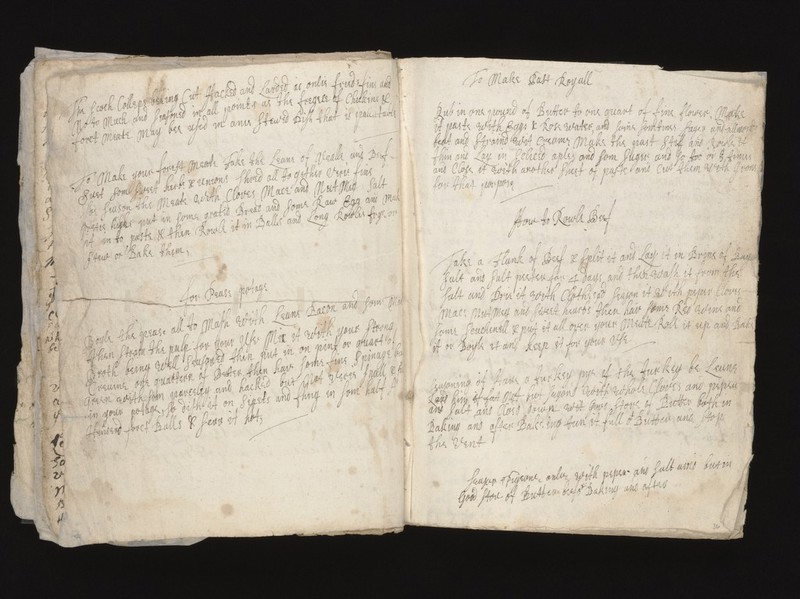 The Scoch Collops being Cut Hacked and Larded is onlie fried fine and
Not to Much and seasoned in all points as the forgeed Chickens &
forct Meate May bee used in anie Stewed Dish that is
To Make your forst Meate take the Leane of Veale and Beef
Suet som sweet hearbs & unions shred all to gether verie fine
season the Meate with Cloves Mace and NutMeg Salt
put in some grated Bread and some Raw Egg and Make
it in to paste & then Rowle it in Balls and Long Rowles frye or
Stew or Bake them,
for Pease potage
Boyle the pease all to Mash with Leane Bacon and som
then straine the pulp for your Use Mix it with your strong
Broth being well seasoned then put in on pint or quart of
Creame, one quartern of Butter then have some fine Spinage
Green with som and hacked but not verie small &
in your potage, so dish it on Sipets and fling in som half
Hundred forst Balls & Serve it hot,
To Make Past Royall
Rub in one pound of Butter to one quart of fine flower, Make
it paste with Eggs & Rose water, and
and Strained with Creame Make the past Stiff and Rowle it
thin and Lay in and som Suger and so too or 3 times
and Close it with another Sheet of paste and Cut them with
for that purpose
How to Rowle Beef
Take a flank of Beef & Split it and Lay it in Brine of
Salt and Salt peeter for 4 Days, and then wash it from the
Salt and Drie it with Cloths & Season it with peper Cloves
Mace NutMeg and sweet hearbs then have some Red Wine and
some & put it all over your Meate Role it up and Bake
it or Boyle it and keep it for your Use
Seasoning if Have a turkey pye if the turkey be Leane
Lard him if fat Not put with whole Cloves and peper
and Salt and Close Down with good store of Butter both in
Baking and after Baking fill it full of Butter and stop
the Vent
Season Pigeons onlie with peper and Salt and both in
Good store of Butter before Baking and after